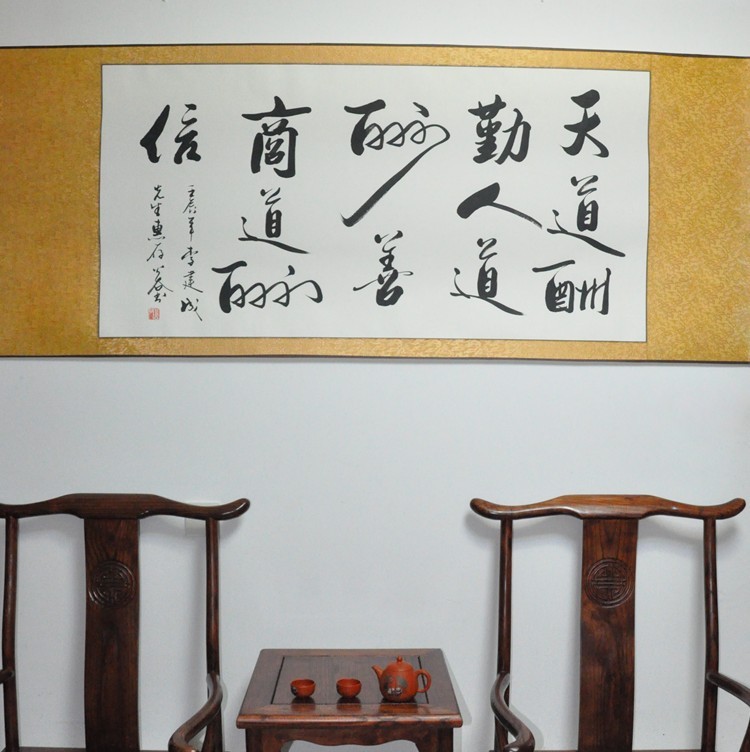 天道酬
勤人道
酬善
商道酬
信
壬辰年李建成
先生惠存